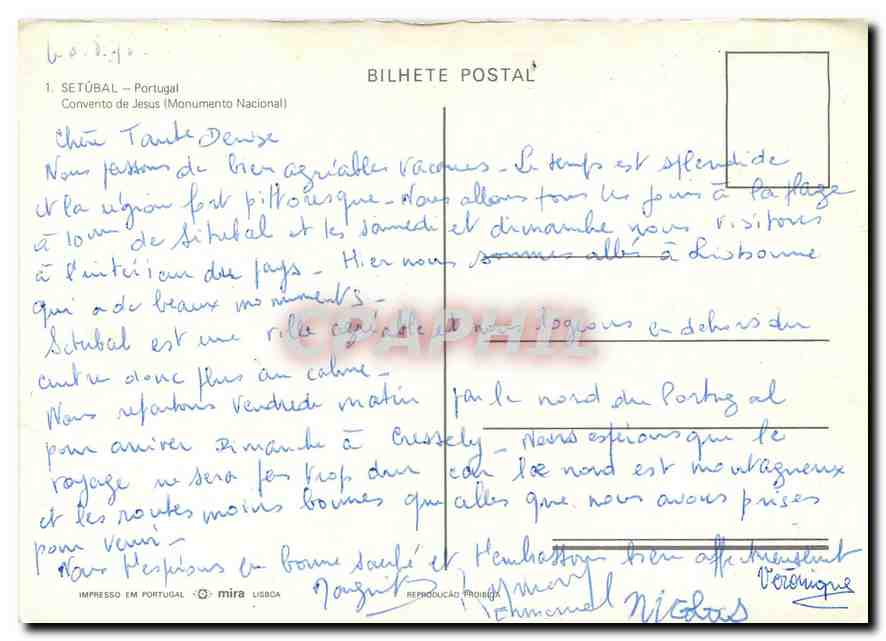 BILHETE POSTAL
1. SETÚBAL – Portugal
Convento de Jesus (Monumento Nacional)
Chère Tante Denise
Nous passons de bien agréables vacances – Le temps est splendide
et la région fort pittoresque – Nous allons tous les jours à la plage
à 10 km de Sétubal et les samedi et dimanche nous visitons
à l'intérieur du pays – Hier nous sommes allés à Lisbonne
qui a de beaux monuments –
Sétubal est une ville agréable et nous logeons en dehors du
centre donc plus au calme –
Nous repartons Vendredi matin par le nord du Portugal
pour arriver Dimanche à Cressely – Nous espérons que le
voyage ne sera pas trop dur car le nord est montagneux
et les routes moins bonnes que celles que nous avons prises
pour venir –
Nous t'espérons en bonne santé et t'embrassons bien affectueusement
Véronique
Emmanuel
Nicolas
IMPRESSO EM PORTUGAL mira LISBOA
REPRODUÇÃO PROIBIDA
CPAPHIL